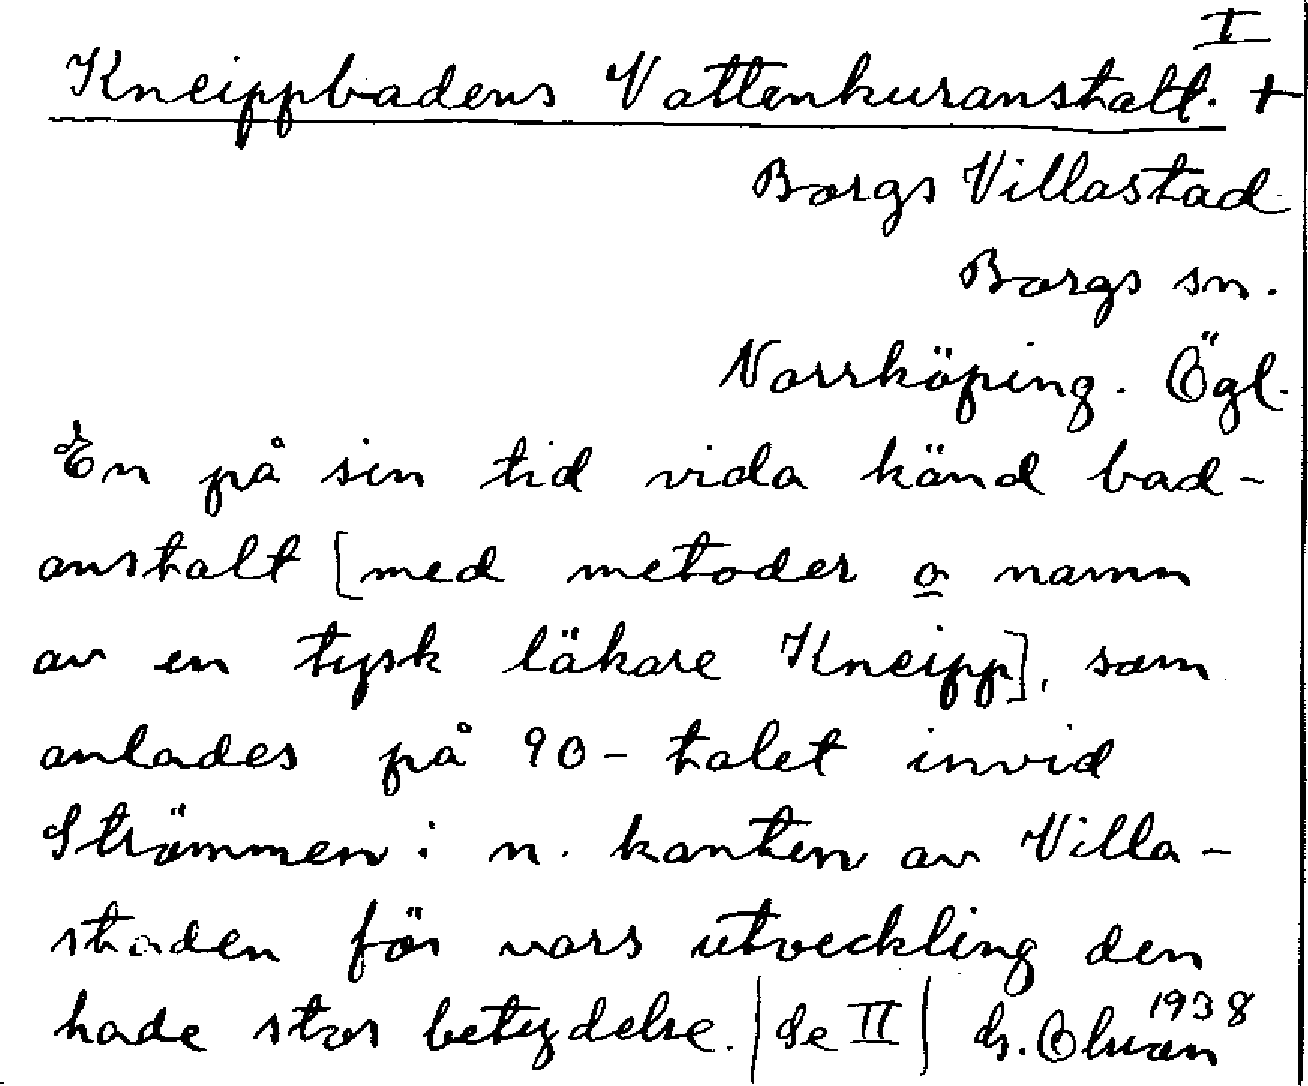 I
Kneippbadens Vattenkuranstalt. +
Borgs Villastad
Borgs sn.
Norrköping. Ögl.
En på sin tid vida känd bad-
anstalt [med metoder o namn
av en tysk läkare Kneipp], som
anlades på 90-talet invid
Strömmen i n. kanten av Villa-
staden för vars utveckling den
hade stor betydelse. |se II|
1938